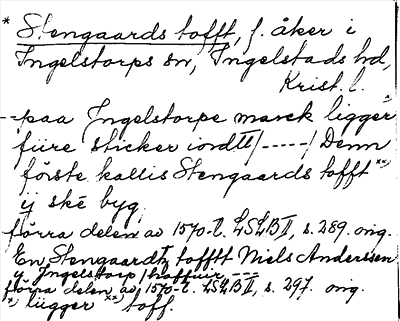 * Stengaards tofft, f. åker i
Ingelstorps sn, Ingelstads hd,
Krist. l.
--paa Jngelstorpe marck ligger*
fiire sticker iordtt/-----/Denn
förste kallis Stengaards tofft**
ÿ ske byg
förra delen av 1570-t. LSLB II, s. 289. orig.
En Stengaardtz tofftt Niels Anderssen
y Jngelstorp/haffuir ---
förra delen av 1570-t. LSLB II, s. 297. orig.
* liigger ** toff.